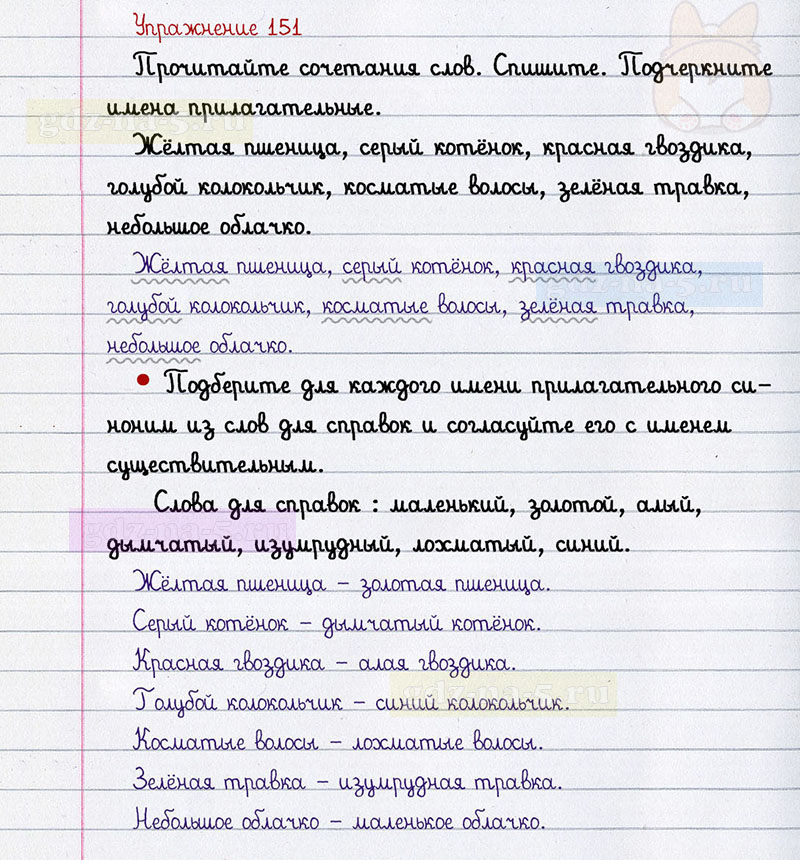 Упражнение 151
Прочитайте сочетания слов. Спишите. Подчеркните
имена прилагательные.
gdz-na-5.ru
Жёлтая пшеница, серый котёнок, красная гвоздика,
голубой колокольчик, косматые волосы, зелёная травка,
небольшое облачко.
Жёлтая пшеница, серый котёнок, красная гвоздика,
gdz-na-5.ru
голубой колокольчик, косматые волосы, зелёная травка,
небольшое облачко.
• Подберите для каждого имени прилагательного си-
ноним из слов для справок и согласуйте его с именем
существительным.
Слова для справок : маленький, золотой, алый,
gdz-na-5.ru
дымчатый, изумрудный, лохматый, синий.
Жёлтая пшеница – золотая пшеница.
Серый котёнок – дымчатый котёнок.
Красная гвоздика – алая гвоздика.
gdz-na-5.ru
Голубой колокольчик – синий колокольчик.
Косматые волосы – лохматые волосы.
Зелёная травка – изумрудная травка.
Небольшое облачко – маленькое облачко.